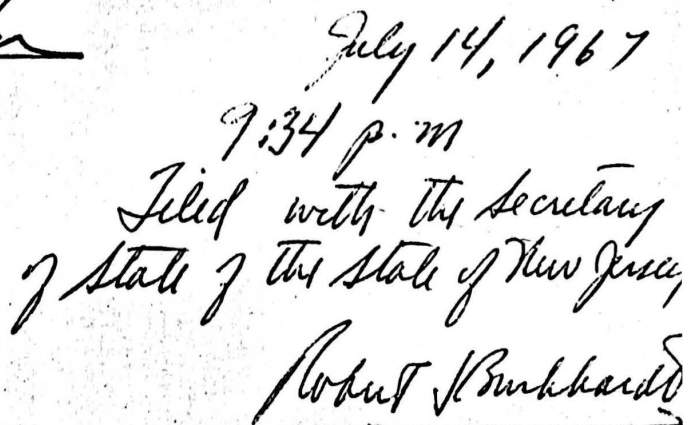 July 14, 1967
9:34 p.m
Filed with the Secretary
of State of the State of New Jersey
Robert J Burkhardt